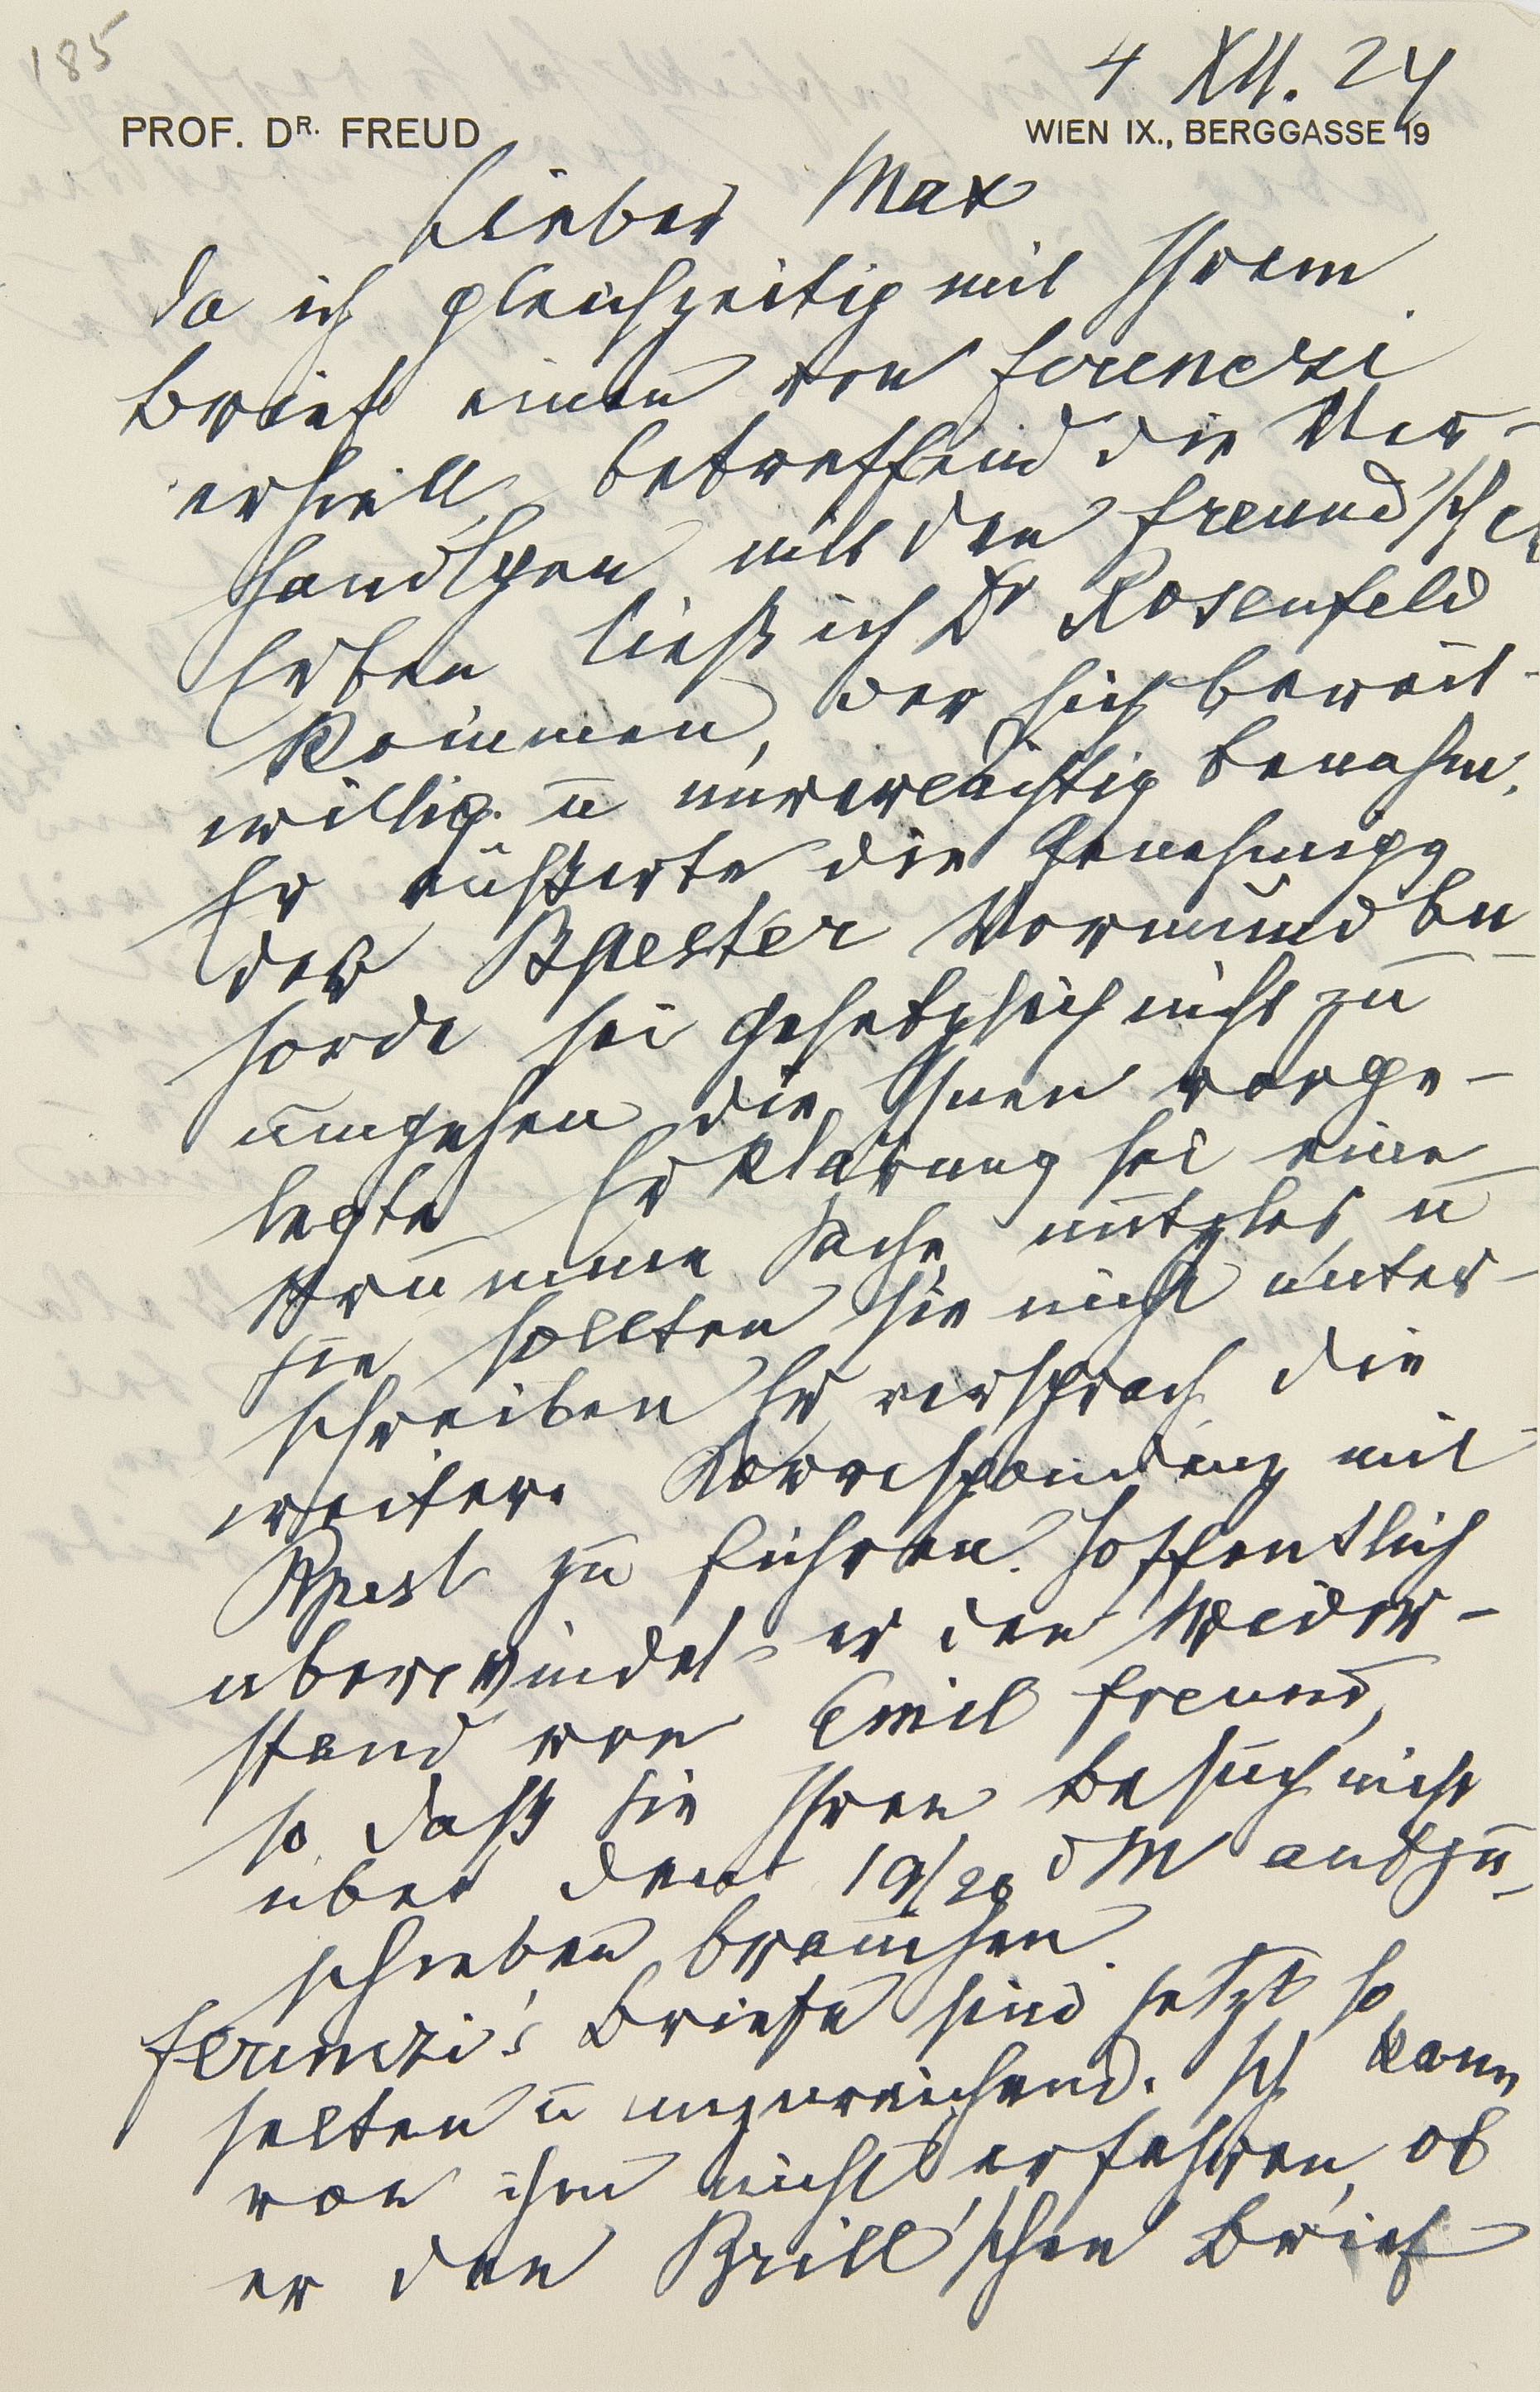 185
4 XII. 24
PROF. DR. FREUD WIEN IX., BERGGASSE 19
Lieber Max
Da ich gleichzeitig mit Ihrem
Brief einen von Ferenczi
erhielt, betreffend die Ver-
handlgen mit den Freund'schen
Erben ließ ich Dr Rosenfeld
kommen, der sich bereit-
willig u unverdächtig benahm.
Er äußerte die Genehmigg
der Bpester Vormundbe-
hörde sei gesetzlich nicht zu
umgehen die Ihnen vorge-
legte Erklärung sei eine
krumme Sache nutzlos u
Sie sollten sie nicht unter-
schreiben Er versprach die
weitere Korrespondenz mit
Bpest zu führen. Hoffentlich
überwindet er den Wider-
stand von Emil Freund,
so daß Sie Ihren Besuch nicht
über den 19/20 dM aufzu-
schieben brauchen.
Ferenczi's Briefe sind jetzt so
selten u unzureichend. Ich kann
von ihm nicht erfahren, ob
er den Brill'schen Brief